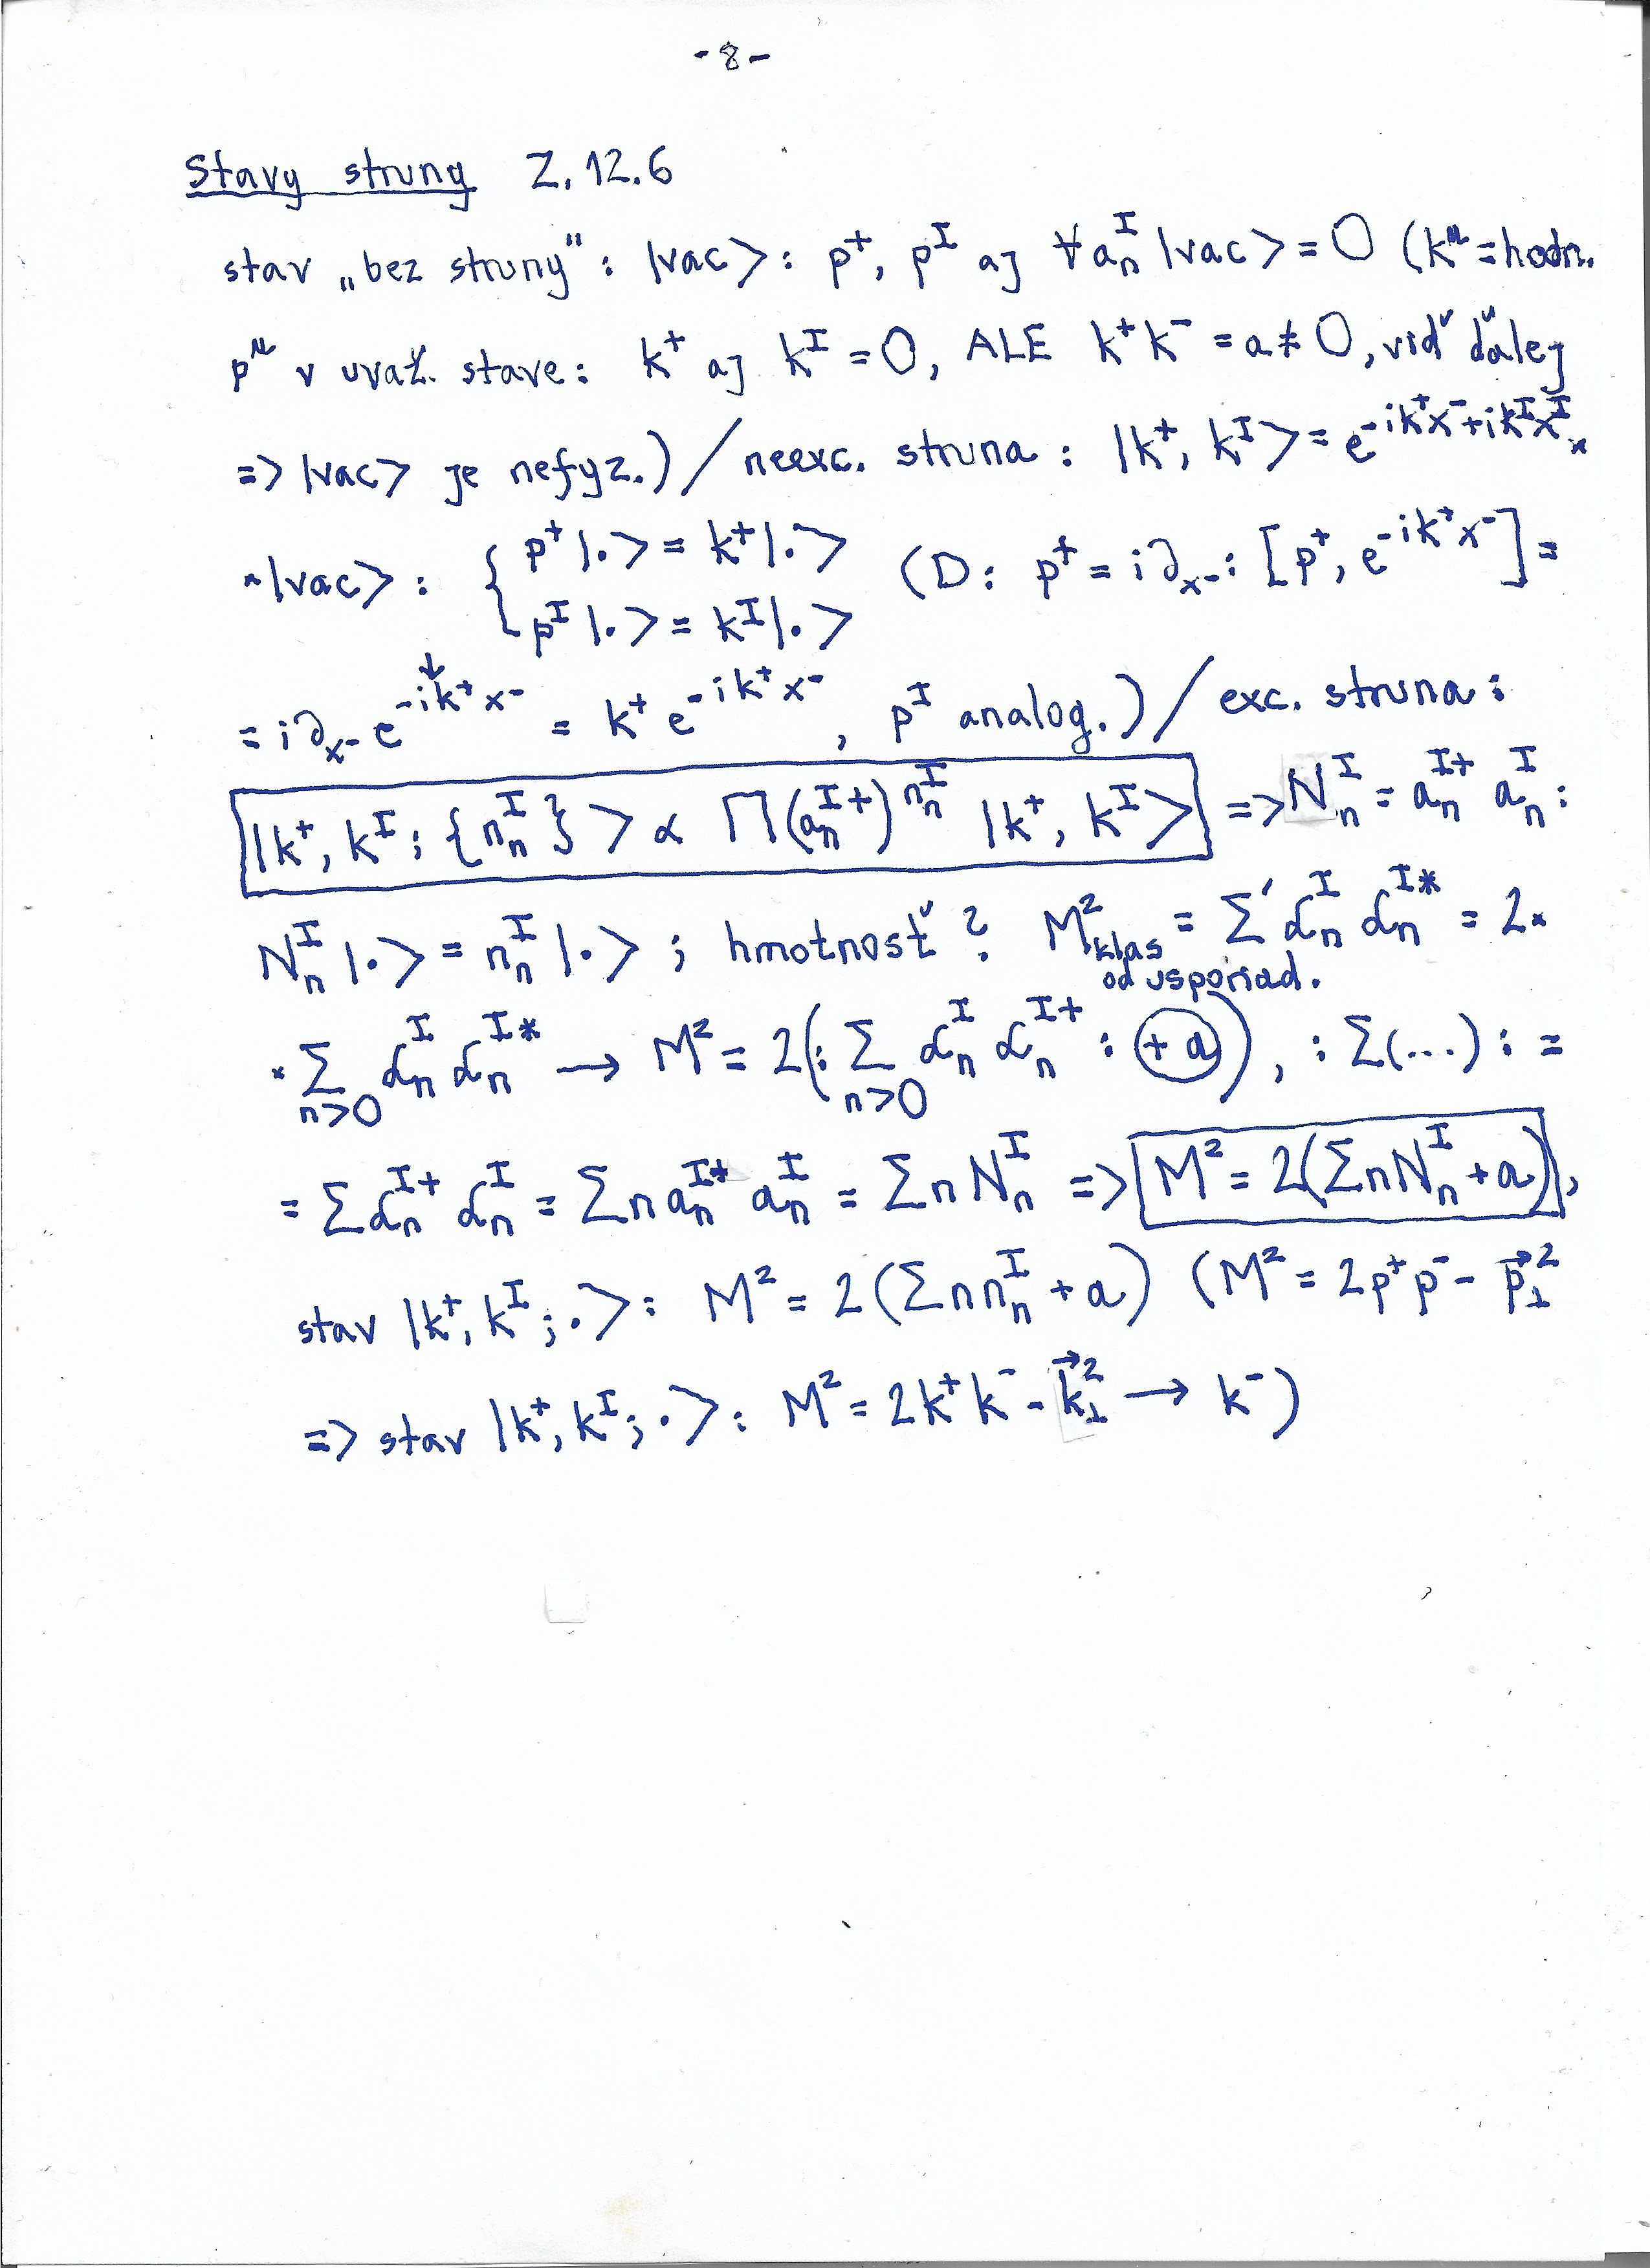 -8-
Stavy struny Z. 12.6
stav „bez struny": |vac>: p⁺, p^I aj ∀a_n^I |vac> = 0 (k^μ = hodn.
p^μ v uvaž. stave: k⁺ aj k^I = 0, ALE k⁺k⁻ = a ≠ 0, viď ďalej
=> |vac> je nefyz.) / neexc. struna: |k⁺, k^I> = e^{-ik⁺x⁻+ik^I x^I} ×
×|vac>: { p⁺|.> = k⁺|.> (D: p⁺ = i∂_{x⁻}: [p⁺, e^{-ik⁺x⁻}] =
p^I|.> = k^I|.>
= i∂_{x⁻} e^{-ik⁺x⁻} = k⁺ e^{-ik⁺x⁻}, p^I analog.) / exc. struna:
|k⁺, k^I; {n_n^I}> ∝ Π(a_n^{I+})^{n_n^I} |k⁺, k^I> => N_n^I = a_n^{I+} a_n^I:
N_n^I |.> = n_n^I |.>; hmotnosť? M²_{klas} = Σ' α_n^I α_n^{I*} = 2×
od usporiad.
× Σ_{n>0} α_n^I α_n^{I*} → M² = 2(: Σ_{n>0} α_n^I α_n^{I+} : + a), : Σ(...) : =
= Σ α_n^{I+} α_n^I = Σ n a_n^{I+} a_n^I = Σ n N_n^I => M² = 2(Σ n N_n^I + a),
stav |k⁺, k^I; .>: M² = 2(Σ n n_n^I + a) (M² = 2p⁺p⁻ - p⃗_⊥²
=> stav |k⁺, k^I; .>: M² = 2k⁺k⁻ - k⃗_⊥² → k⁻)